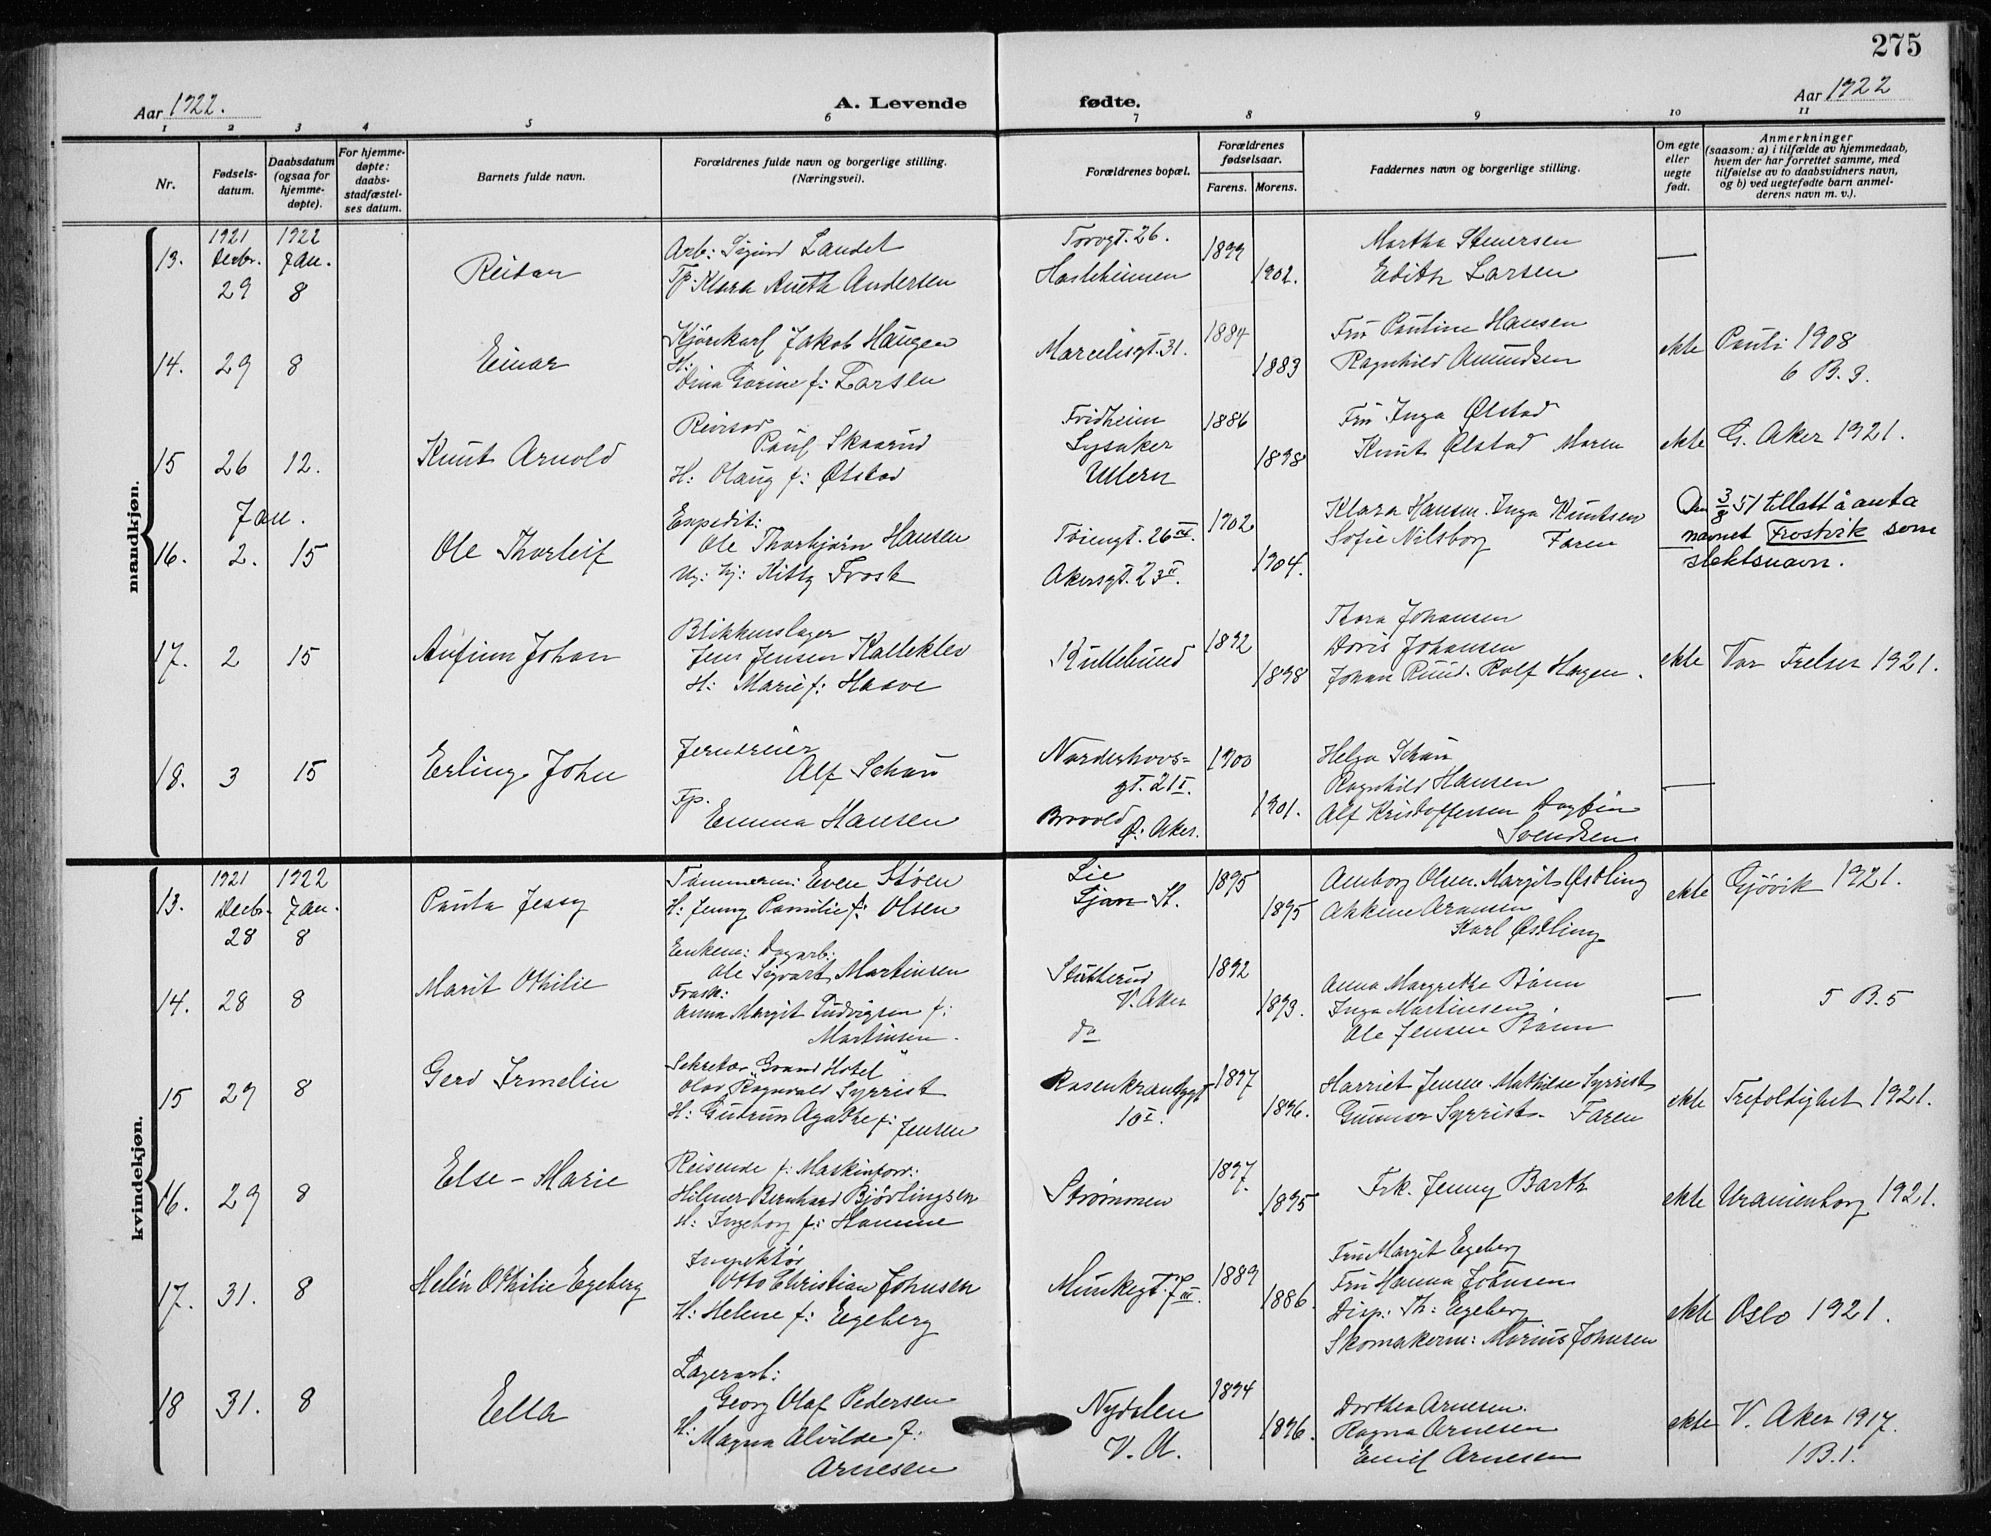 275
Aar 1922.
A. Levende
fødte.
Aar 1922
1 2 3 4 5 6 7 8 9 10 11
Nr.
Fødsels-
datum.
Daabsdatum
(ogsaa for
hjemme-
døpte).
For hjemme-
døpte:
daabs-
stadfæstel-
ses datum.
Barnets fulde navn.
Forældrenes fulde navn og borgerlige stilling.
(Næringsvei).
Forældrenes bopæl.
Forældrenes
fødselsaar.
Farens. Morens.
Faddernes navn og borgerlige stilling.
Om egte
eller
uegte
født.
Anmerkninger
(saasom: a) i tilfælde av hjemmedaab,
hvem der har forrettet samme, med
tilføielse av to daabsvidners navn,
og b) ved uegtefødte barn anmel-
derens navn m. v.).
mandkjøn.
1921 1922
13. Decbr. Jan.
29 8
Reidar
Arb: Sigurd Landet
Tp. Klara Aneth Andersen
Torvgt. 26.
Hasleheimen
1899
1902.
Martha Stenersen
Edith Larsen
—
14. 29 8
Einar
Kjørekarl Jakob Haugen
H:
Dina Gorine f: Larsen
Marcelisgt. 31.
1884
1883
Fru Pauline Hansen
Ragnhild Amundsen
ekte
Pauli 1908
6 B. 3.
15 26 12.
Knut Arnold
Revisor
Paul Skaarud
H: Olaug f: Ølstad
Fridheim
Lysaker
Ullern
1886
1898
Fru Inga Ølstad
Knut Ølstad Moren
ekte
G. Aker 1921.
Jan.
16. 2. 15
Ole Thorleif
Expedit:
Ole Thorbjørn Hansen
Ug: tj: Kitty Frost
Tøiengt. 26 III.
Akersgt. 23 II.
1902
1904.
Klara Hansen. Inga Knutsen
Sofie Nilsborg Faren
—
Den 3/8 51 tillatt å anta
navnet Frostvik som
slektsnavn.
17. 2 15
Anfinn Johan
Blikkenslager
Jens Jensen Kalleklev
H: Marie f: Haave
Kullebund
1892
1898
Thora Johansen
Doris Johansen
Johan Ruud. Rolf Hagen.
ekte
Vor Frelser 1921.
18. 3 15
Erling John
Jerndreier
Alf Schau
Fp.
Emma Hansen
Norderhovs=
gt. 21 I.
Brovold
Ø: Aker.
1900
1901.
Helga Schau
Ragnhild Hansen
Alf Kristoffersen Dagfin
Svendsen
—
kvindekjøn.
1921 1922
13. Decbr. Jan.
28 8
Paula Jessy
Tømmerm: Even Støen
H: Jenny Pamilie f: Olsen
Lie
Ljan St.
1895
1895
Amborg Olsen. Margit Østling
Karl Østling
ekte
Gjøvik 1921.
14. 28 8
Marit Othilie
Enkem: Dagarb:
Ole Sigvart Martinsen
Frask:
Anna Margit Ludvigsen f:
Martinsen.
V. Aker
do
1892
1893.
Anna Margrethe Bønn
Inga Martinsen
Ole Jensen Bønn
—
5 B. 5
15 29 8
Gerd Irmelin
Sekretær "Grand Hotel"
Olav Ragnvald Syrrist
H: Gudrun Agathe f: Jensen
Rosenkrantzgt
10 I.
1897
1896.
Harriet Jensen. Mathilde Syrrist
Gunnar Syrrist. Faren
ekte
Trefoldighet 1921.
16. 29 8
Else - Marie
Reisende f: Maskinforr:
Hilmer Bernhard Bjøvlingsen
H: Ingeborg f: Hamme
Strømmen
1897.
1895
Frk. Jenny Barth
ekte
Uranienborg 1921.
17. 31. 8
Helén Othilie Egeberg
Inspektør
Otto Christian Johnsen
H: Helene f: Egeberg
Munkegt. 7 III.
1889
1886.
Fru Margit Egeberg
Fru Hanna Johnsen
Disp: Th: Egeberg
Skomakerm: Marius Johnsen
ekte
Oslo 1921.
18 31. 8
Ella
Lagerarb:
Georg Olaf Pedersen
H:
Magna Alvilde f:
Arnesen
Nydalen
V. A.
1894
1896.
Dorthea Arnesen.
Ragna Arnesen
Emil Arnesen
ekte
V. Aker 1917.
1 B. 1.